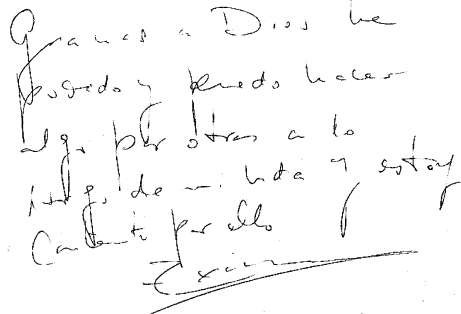 Gracias a Dios he
podido y puedo hacer
algo por otros a lo
largo de mi vida y estoy
Contento por ello